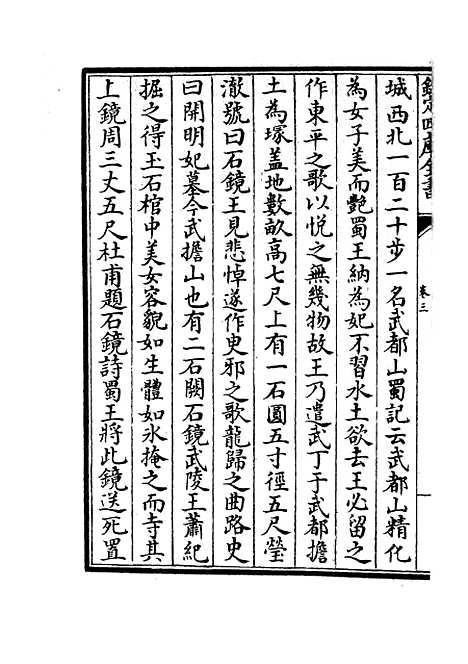 欽定四庫全書
卷三
城西北一百二十步一名武都山蜀記云武都山精化
為女子美而艷蜀王納為妃不習水土欲去王必留之
作東平之歌以悦之無幾物故王乃遣武丁于武都擔
土為塜盖地數畝髙七尺上有一石圓五寸徑五尺瑩
澈號曰石鏡王見悲悼遂作臾邪之歌龍歸之曲路史
曰開明妃墓今武擔山也有二石闕石鏡武陵王蕭紀
掘之得玉石棺中美女容貌如生體如氷掩之而寺其
上鏡周三丈五尺杜甫題石鏡詩蜀王將此鏡送死置